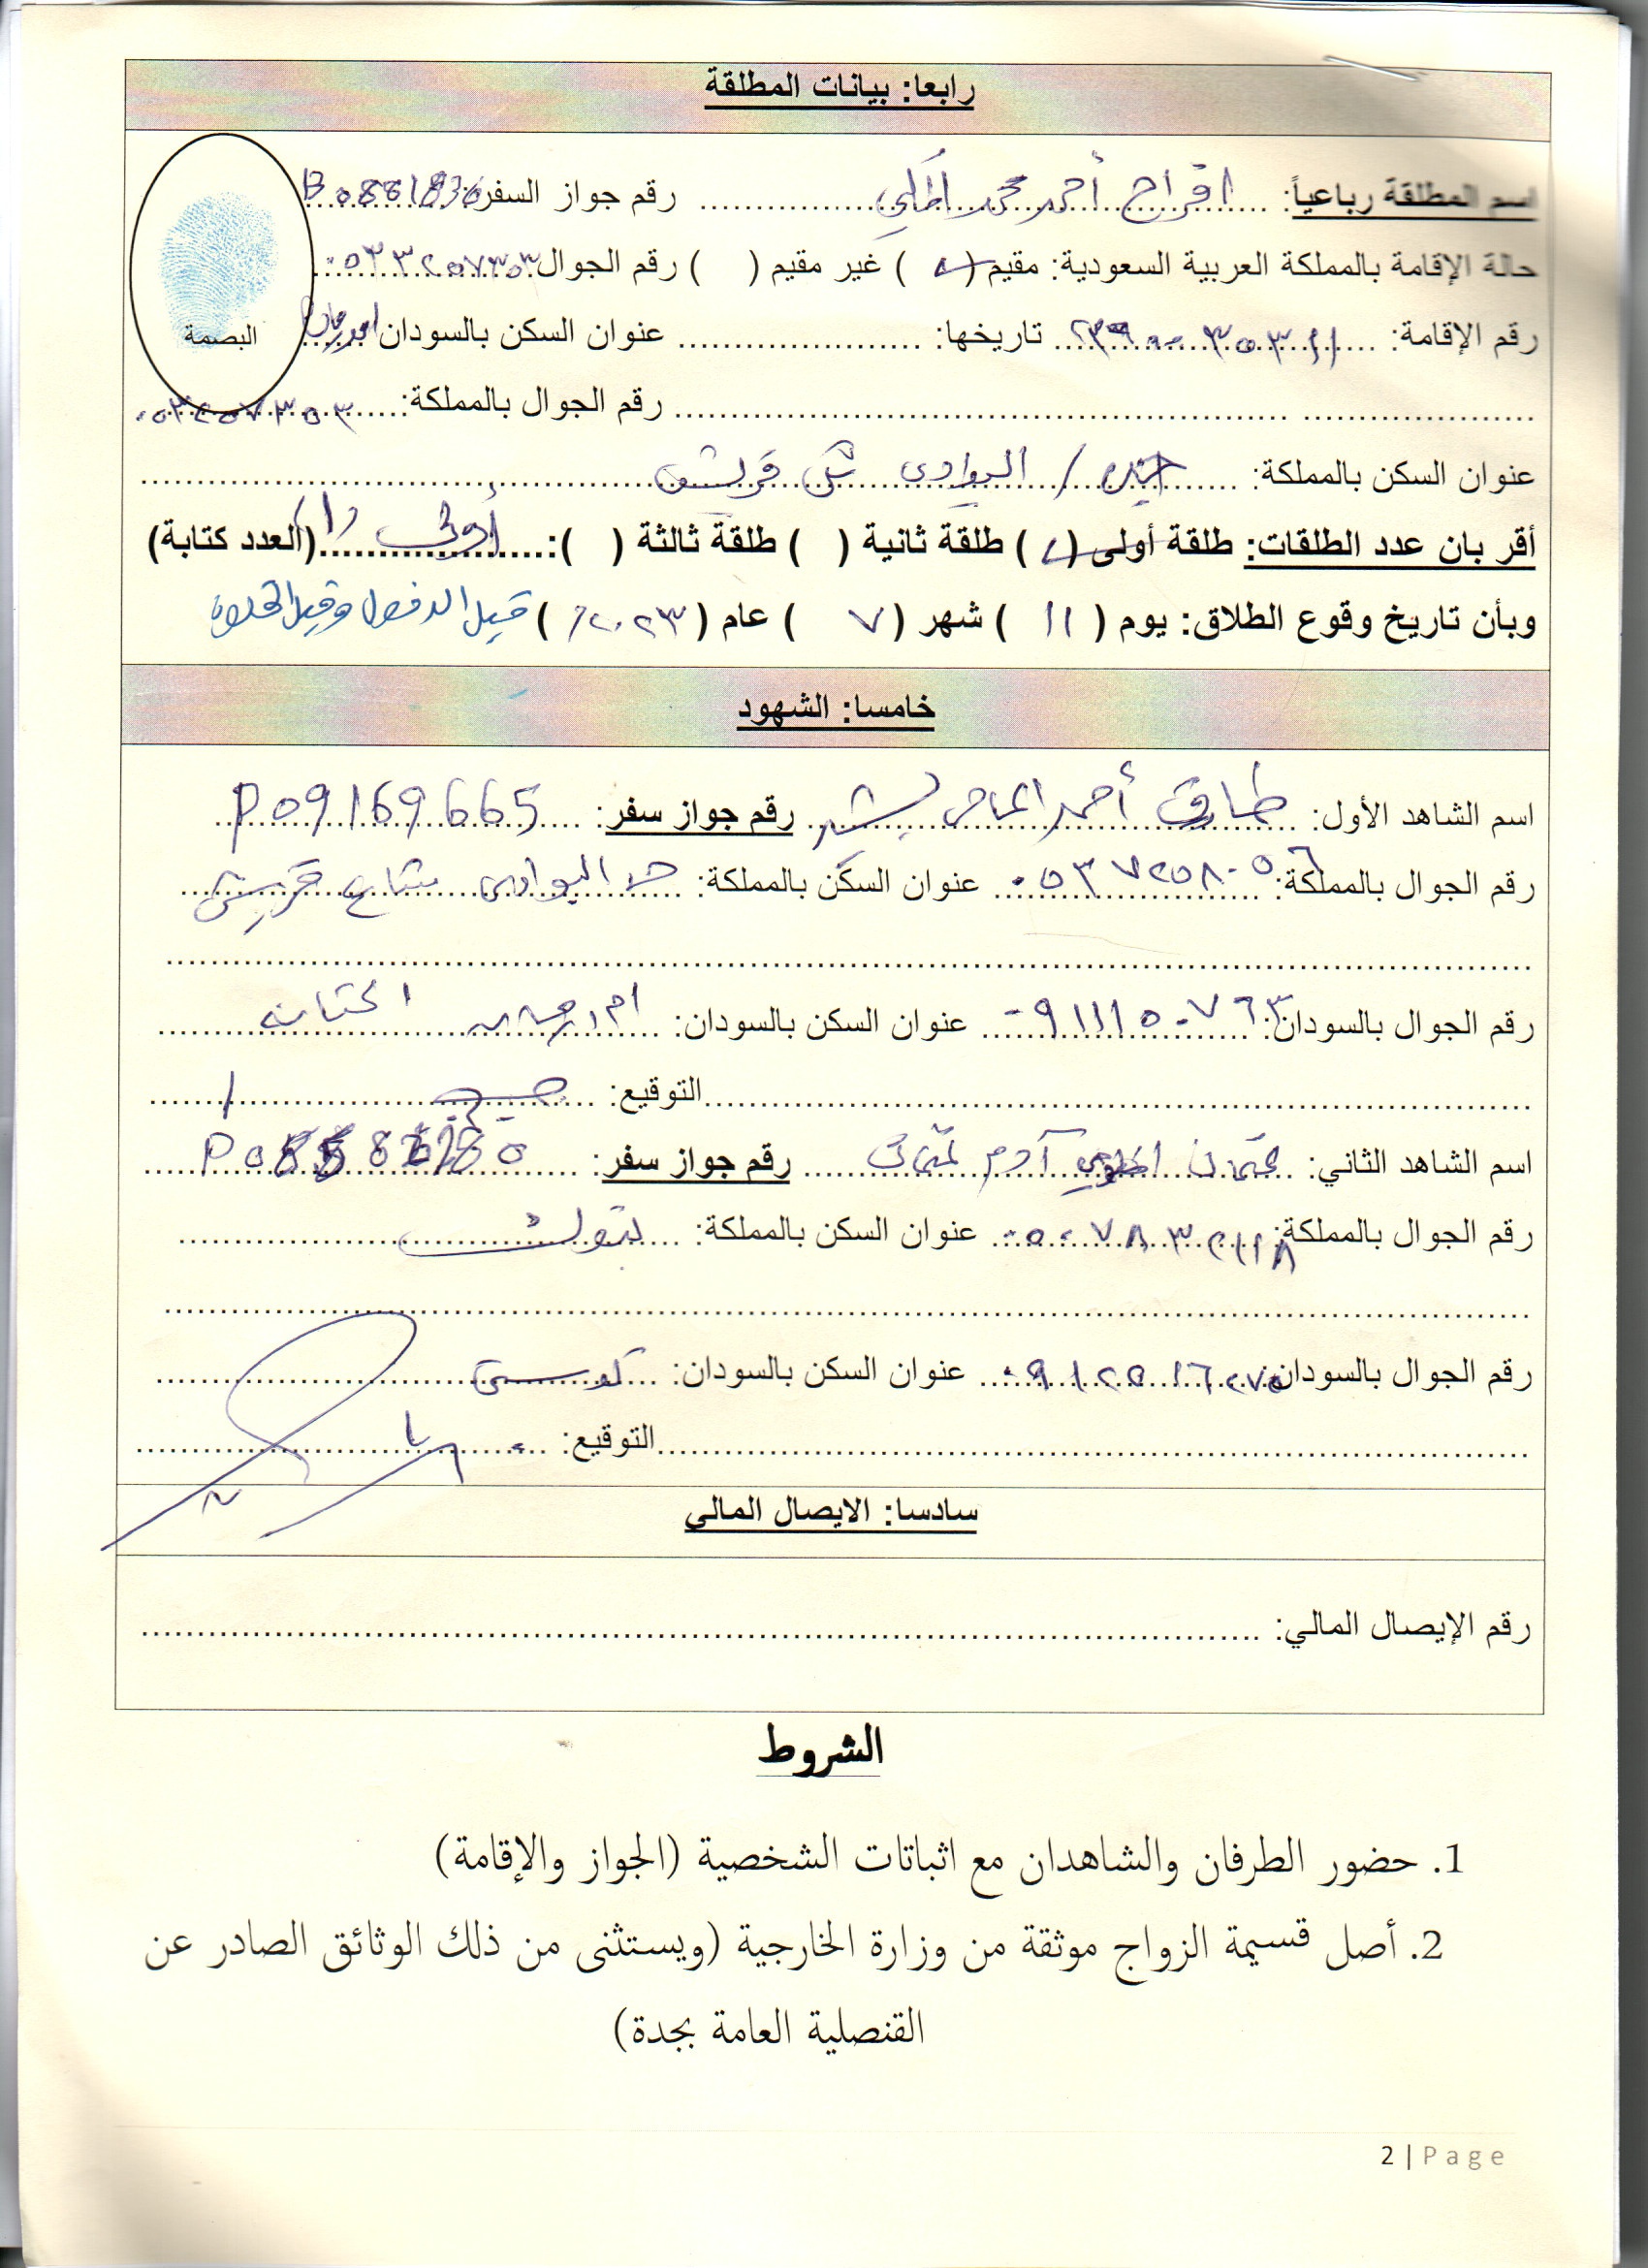 رابعا: بيانات المطلقة
اسم المطلقة رباعياً: افراح أحمد محمد رقم جواز السفر:
حالة الإقامة بالمملكة العربية السعودية: مقيم ( ) غير مقيم ( ) رقم الجوال: ٠٥٣٣٢٥٧٣٥٣
رقم الإقامة: تاريخها: عنوان السكن بالسودان امدرمان
البصمة
رقم الجوال بالمملكة:
عنوان السكن بالمملكة: / البوادى ش قريش
أقر بان عدد الطلقات: طلقة أولى ( ) طلقة ثانية ( ) طلقة ثالثة ( ): أولى (العدد كتابة)
وبأن تاريخ وقوع الطلاق: يوم ( ١١ ) شهر ( ٧ ) عام ( ٢٠٢٣ ) قبل الدخول وقبل الخلوة
خامسا: الشهود
اسم الشاهد الأول: طارق أحمد بشير رقم جواز سفر: P09169665
رقم الجوال بالمملكة: ٠٥٣٧٢٥٨٠٥٦ عنوان السكن بالمملكة: البوادى شارع قريش
رقم الجوال بالسودان: ٠٩١١١٥٠٧٦٣ عنوان السكن بالسودان:
التوقيع:
اسم الشاهد الثاني: عثمان آدم عثمان رقم جواز سفر:
رقم الجوال بالمملكة: ٠٥٠٧٨٣٢١١٨ عنوان السكن بالمملكة:
رقم الجوال بالسودان: ٠٩١٢٥١٦٢٧٥ عنوان السكن بالسودان: كوستى
التوقيع:
سادسا: الايصال المالي
رقم الإيصال المالي:
الشروط
1. حضور الطرفان والشاهدان مع اثباتات الشخصية (الجواز والإقامة)
2. أصل قسيمة الزواج موثقة من وزارة الخارجية (ويستثنى من ذلك الوثائق الصادر عن
القنصلية العامة بجدة)
2 | Page